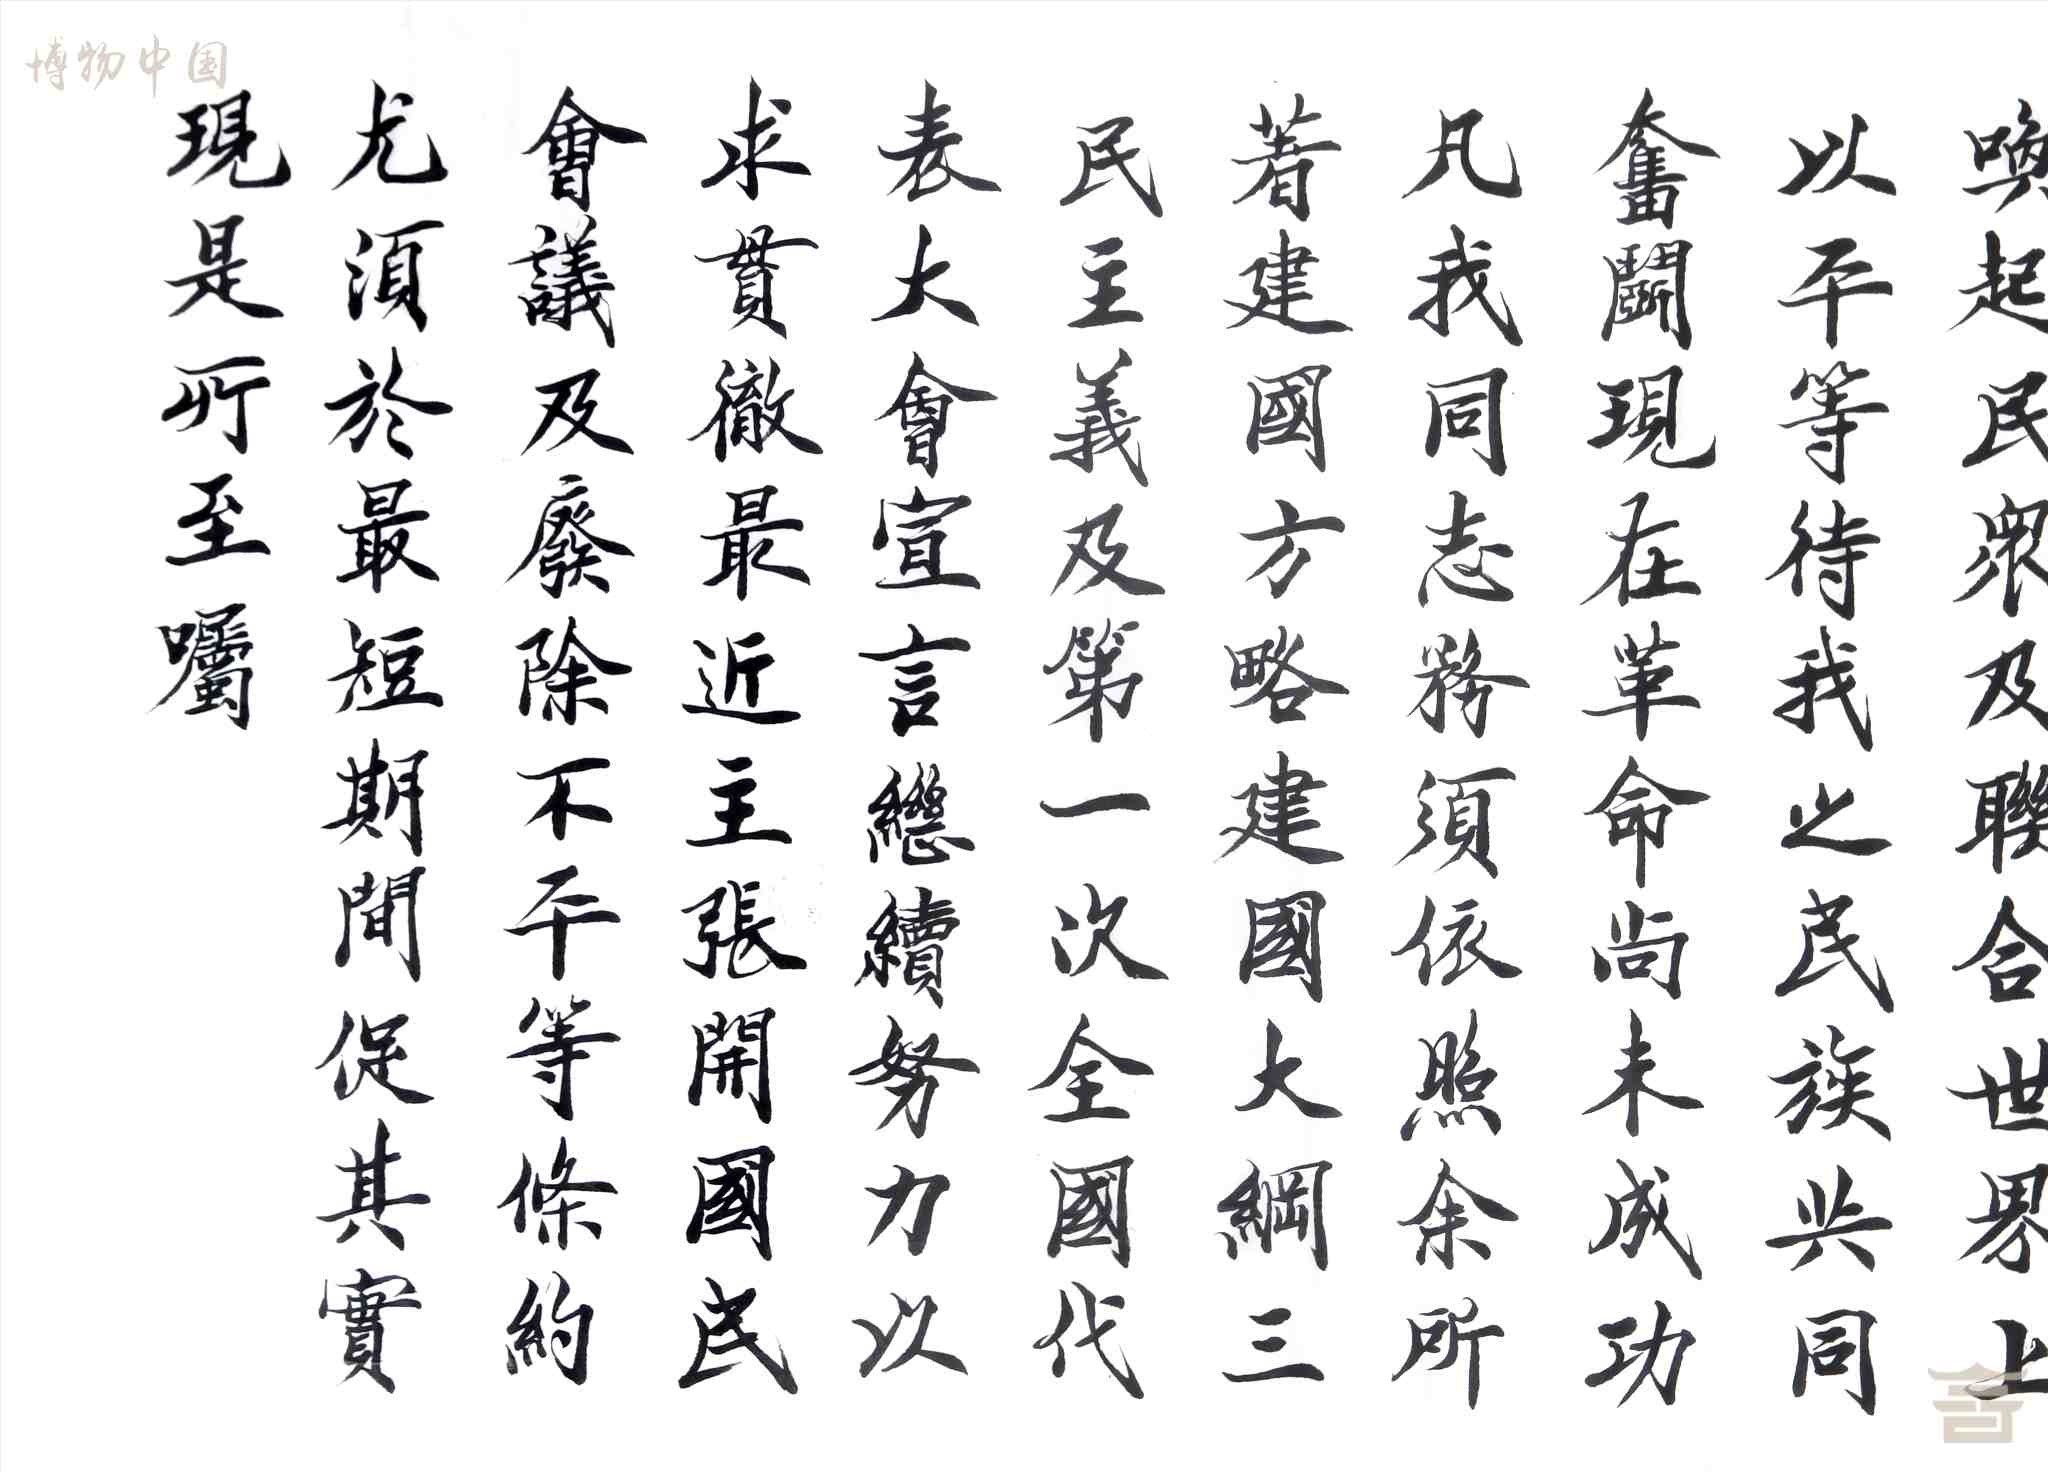 喚起民眾及聯合世界上
以平等待我之民族共同
奮鬭現在革命尚未成功
凡我同志務須依照余所
著建國方略建國大綱三
民主義及第一次全國代
表大會宣言繼續努力以
求貫徹最近主張開國民
會議及廢除不平等條約
尤須於最短期間促其實
現是所至囑
博物中国